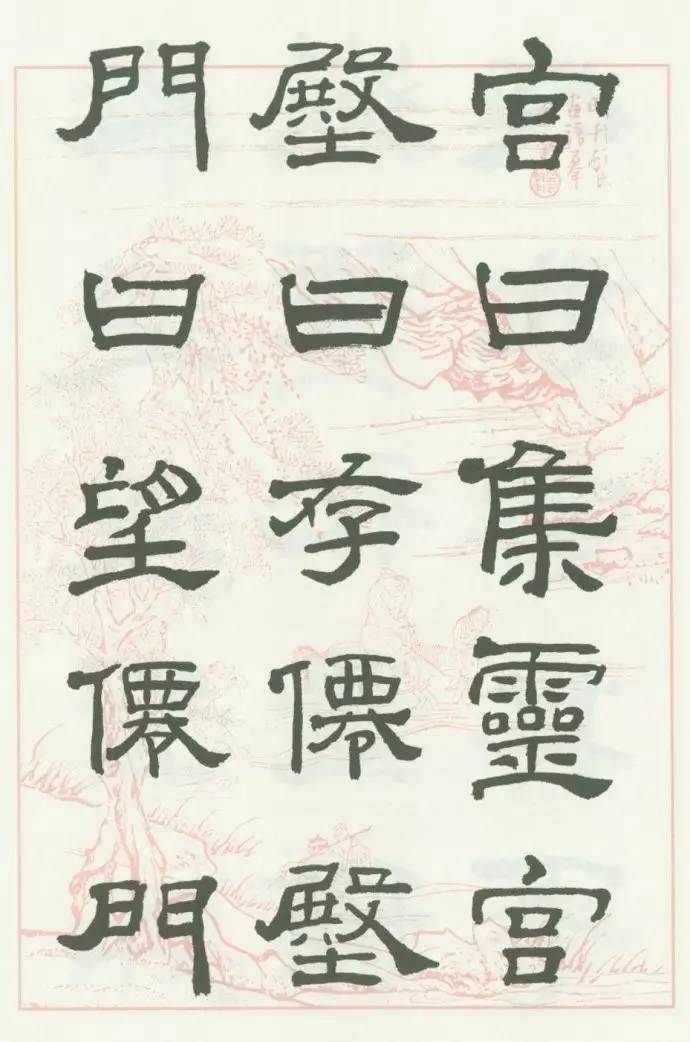 宮曰集靈宮
壂曰存僊壂
門曰望僊門